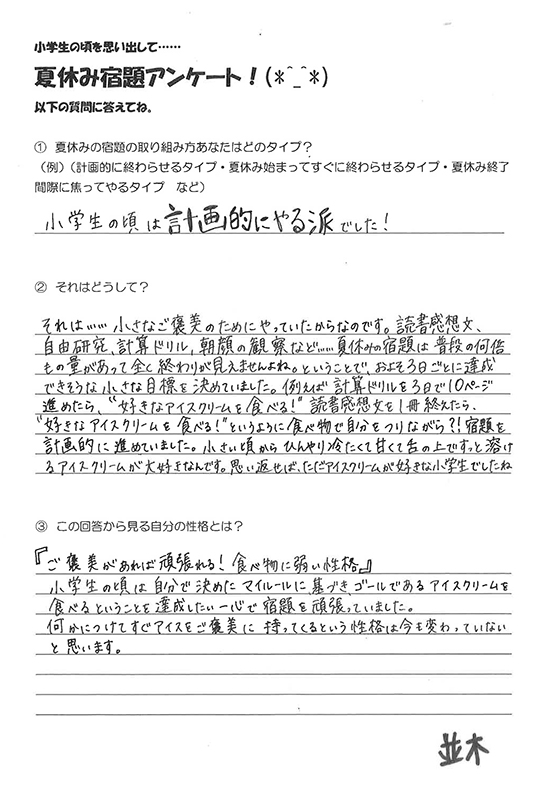 小学生の頃を思い出して……
夏休み宿題アンケート！(*^_^*)
以下の質問に答えてね。
① 夏休みの宿題の取り組み方あなたはどのタイプ？
（例）（計画的に終わらせるタイプ・夏休み始まってすぐに終わらせるタイプ・夏休み終了
間際に焦ってやるタイプ　など）
小学生の頃は計画的にやる派でした！
② それはどうして？
それは…… 小さなご褒美のためにやっていたからなのです。読書感想文、
自由研究、計算ドリル、朝顔の観察など……夏休みの宿題は普段の何倍
もの量があって全く終わりが見えませんよね。ということで、およそ3日ごとに達成
できそうな小さな目標を決めていました。例えば計算ドリルを3日で10ページ
進めたら、“好きなアイスクリームを食べる!”読書感想文を1冊終えたら、
“好きなアイスクリームを食べる!”というように食べ物で自分をつりながら?!宿題を
計画的に進めていました。小さい頃からひんやり冷たくて甘くて舌の上ですっと溶け
るアイスクリームが大好きなんです。思い返せば、ただアイスクリームが好きな小学生でしたね
③ この回答から見る自分の性格とは？
『ご褒美があれば頑張れる! 食べ物に弱い性格』
小学生の頃は自分で決めたマイルールに基づきゴールであるアイスクリームを
食べるということを達成したい一心で宿題を頑張っていました。
何かにつけてすぐアイスをご褒美に持ってくるという性格は今も変わっていない
と思います。
並木